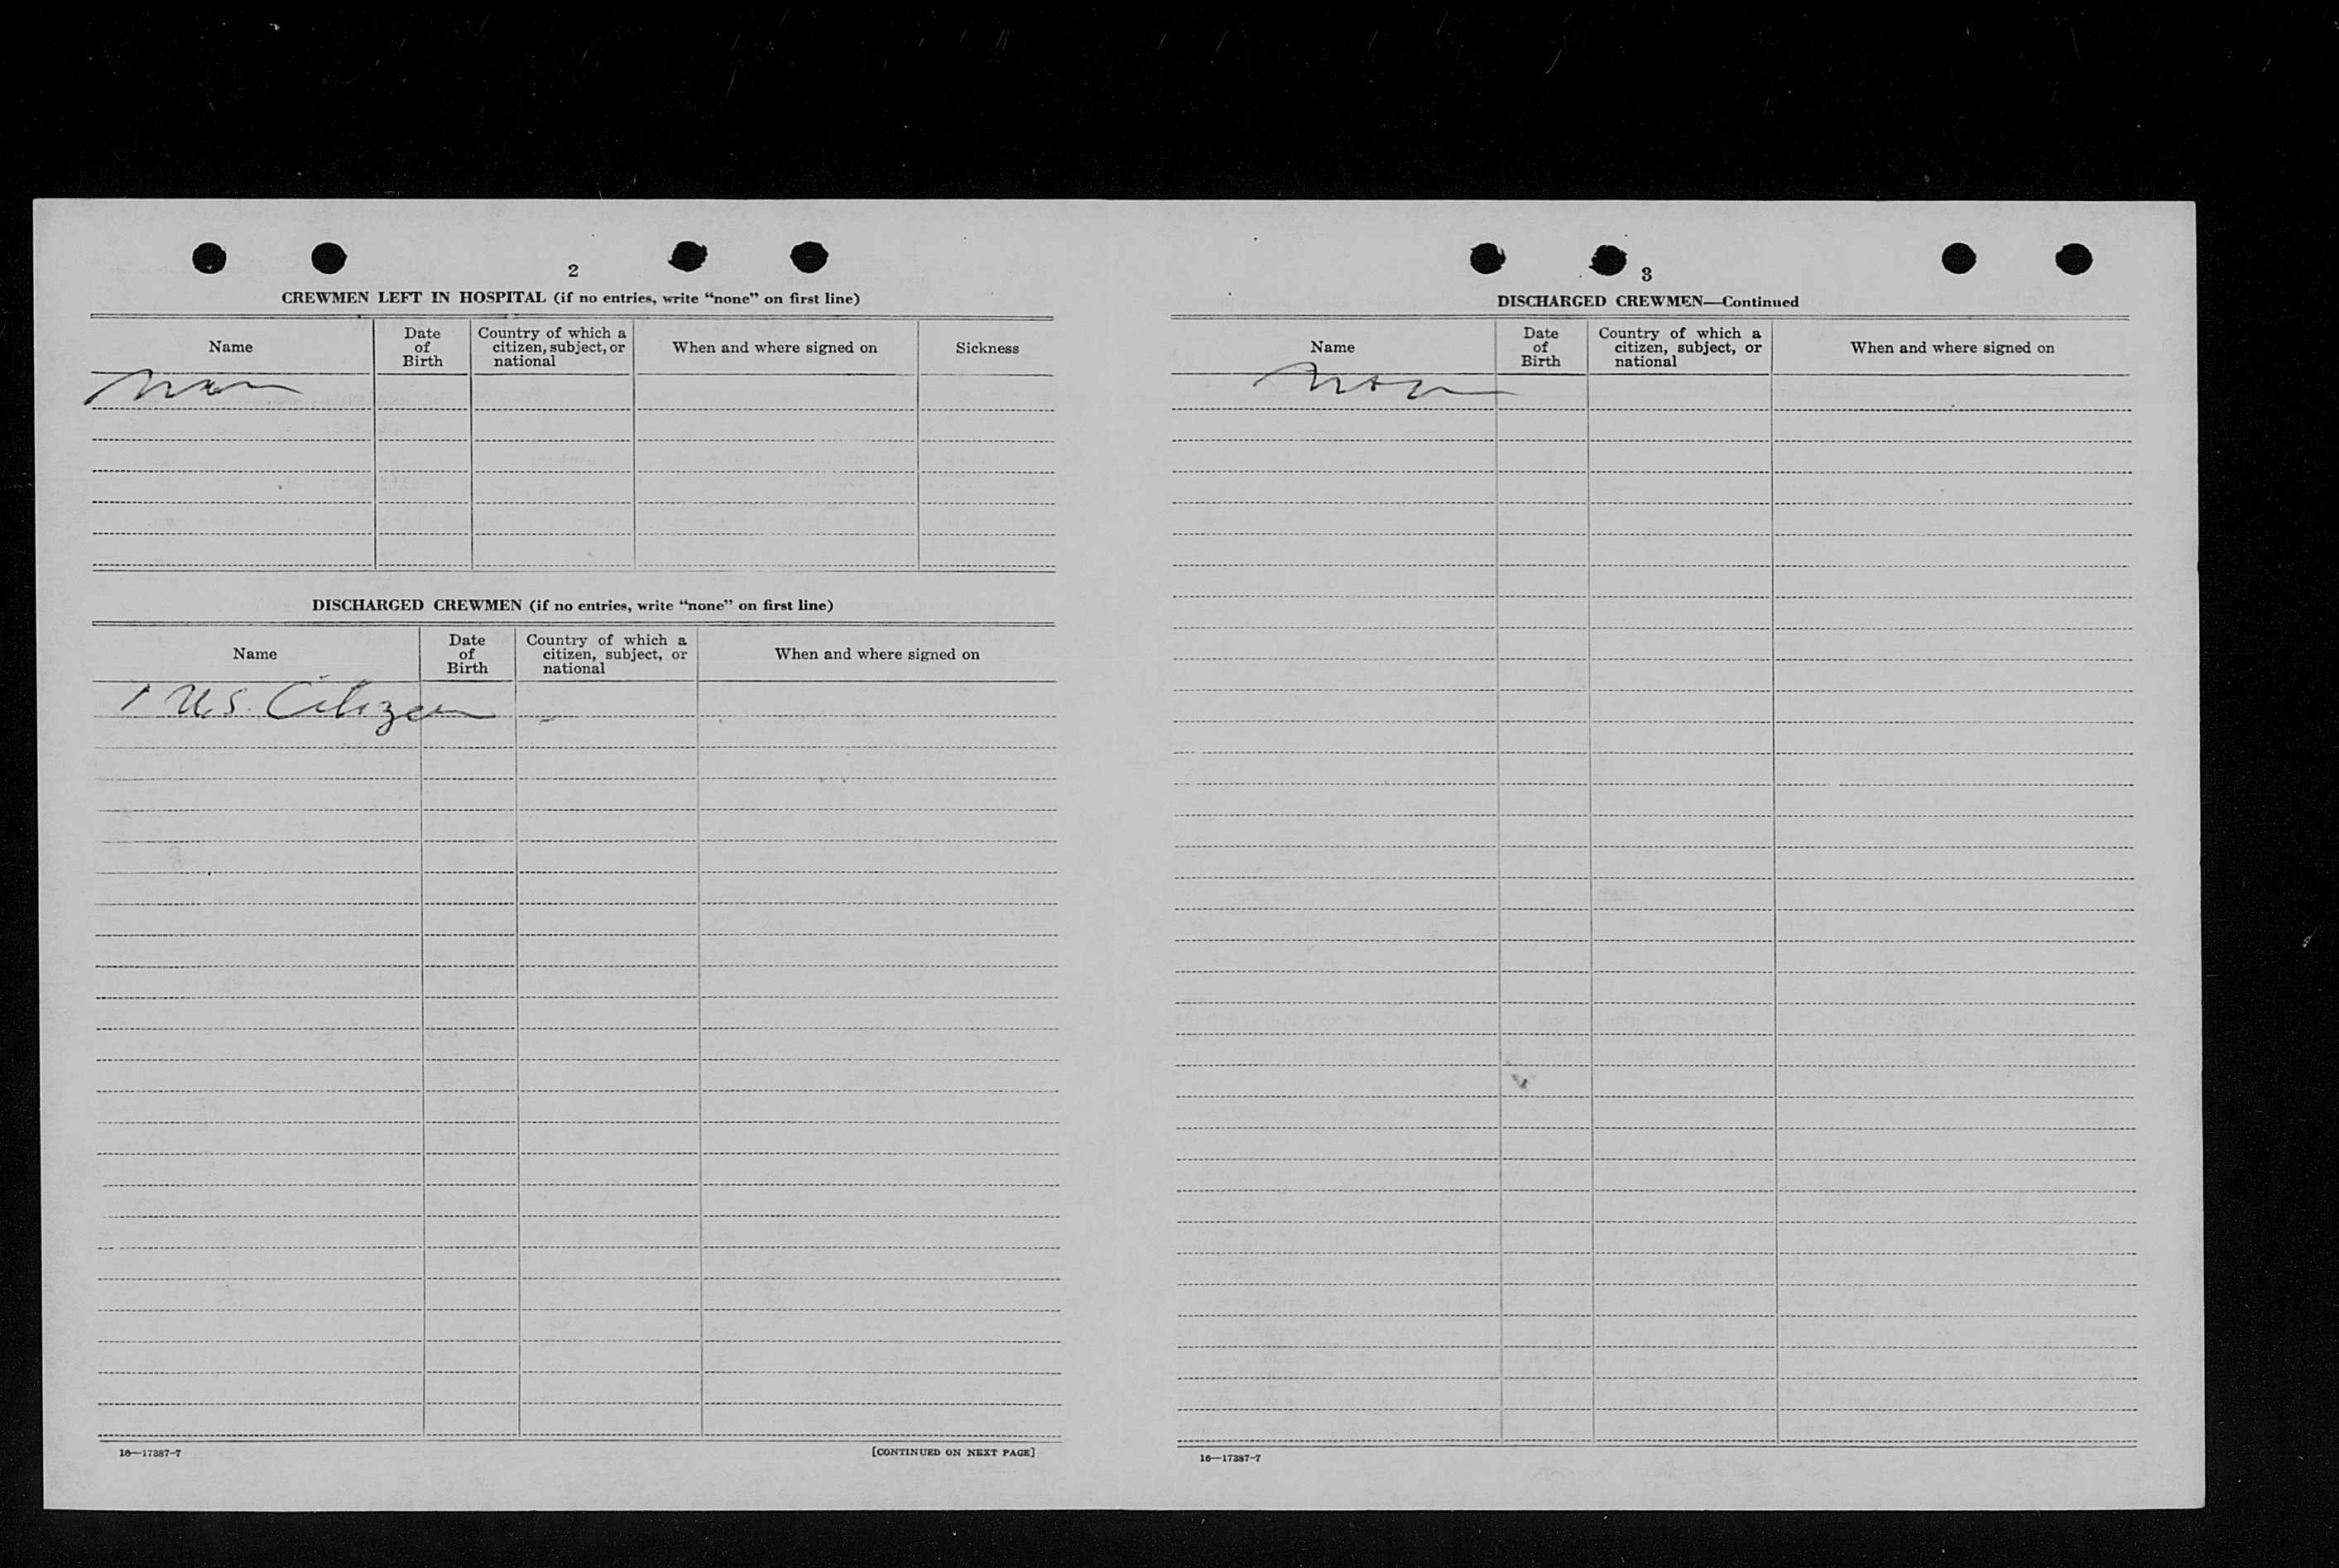 2
CREWMEN LEFT IN HOSPITAL (if no entries, write “none” on first line)
Name
Date of Birth
Country of which a citizen, subject, or national
When and where signed on
Sickness
None
DISCHARGED CREWMEN (if no entries, write “none” on first line)
Name
Date of Birth
Country of which a citizen, subject, or national
When and where signed on
1 U.S. Citizen
16—17387-7
[CONTINUED ON NEXT PAGE]
3
DISCHARGED CREWMEN—Continued
Name
Date of Birth
Country of which a citizen, subject, or national
When and where signed on
None
16—17387-7